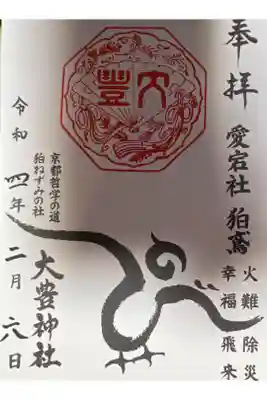 奉拝
愛宕社 狛鳶
火難除災
幸福飛来
大豊
京都哲学の道
狛ねずみの社
大豊神社
令和四年二月六日